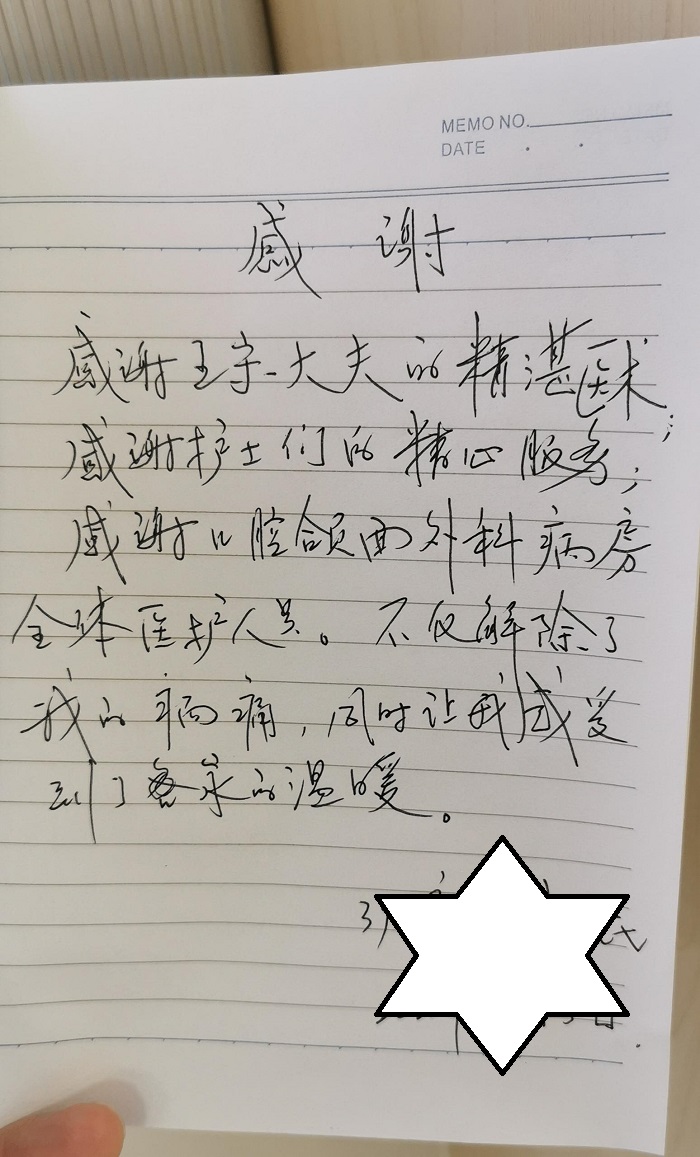 MEMO NO.
DATE
感 谢
感谢王宇一大夫的精湛医术;
感谢护士们的精心服务;
感谢口腔颌面外科病房
全体医护人员。不仅解除了
我的病痛,同时让我感受
到了家的温暖。